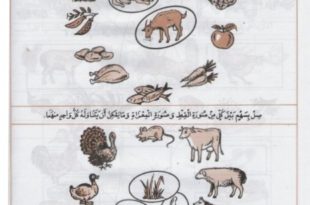 صِلْ بِسَهْمٍ بَيْنَ كُلٍّ مِنْ صُورَةِ الْقِطِّ وَ صُورَةِ الْمِعْزَاةِ وَ مَا يُمْكِنُ أَنْ يَتَنَاوَلَهُ كُلُّ وَاحِدٍ مِنْهُمَا.